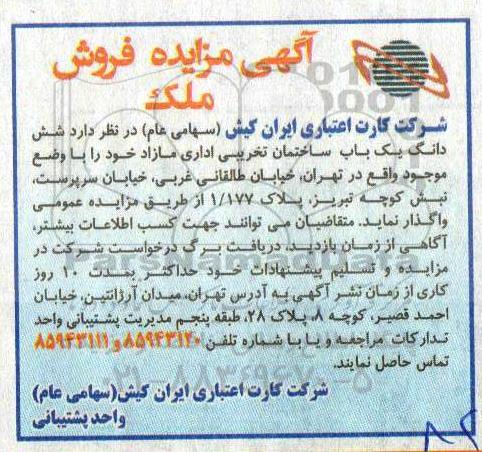 آگهی مزایده فروش
ملک
شرکت کارت اعتباری ایران کیش (سهامی عام) در نظر دارد شش
دانگ یک باب ساختمان تخریبی اداری مازاد خود را با وضع
موجود واقع در تهران، خیابان طالقانی غربی، خیابان سرپرست،
نبش کوچه تبریز، پلاک ۱/۱۷۷ از طریق مزایده عمومی
واگذار نماید. متقاضیان می توانند جهت کسب اطلاعات بیشتر،
آگاهی از زمان بازدید، دریافت برگ درخواست شرکت در
مزایده و تسلیم پیشنهادات خود حداکثر بمدت ۱۰ روز
کاری از زمان نشر آگهی به آدرس تهران، میدان آرژانتین، خیابان
احمد قصیر، کوچه ۸، پلاک ۲۸، طبقه پنجم مدیریت پشتیبانی واحد
تدارکات مراجعه و یا با شماره تلفن ۸۵۹۴۳۱۲۰ و ۸۵۹۴۳۱۱۱
تماس حاصل نمایند.
شرکت کارت اعتباری ایران کیش(سهامی عام)
واحد پشتیبانی
ParsNamadData